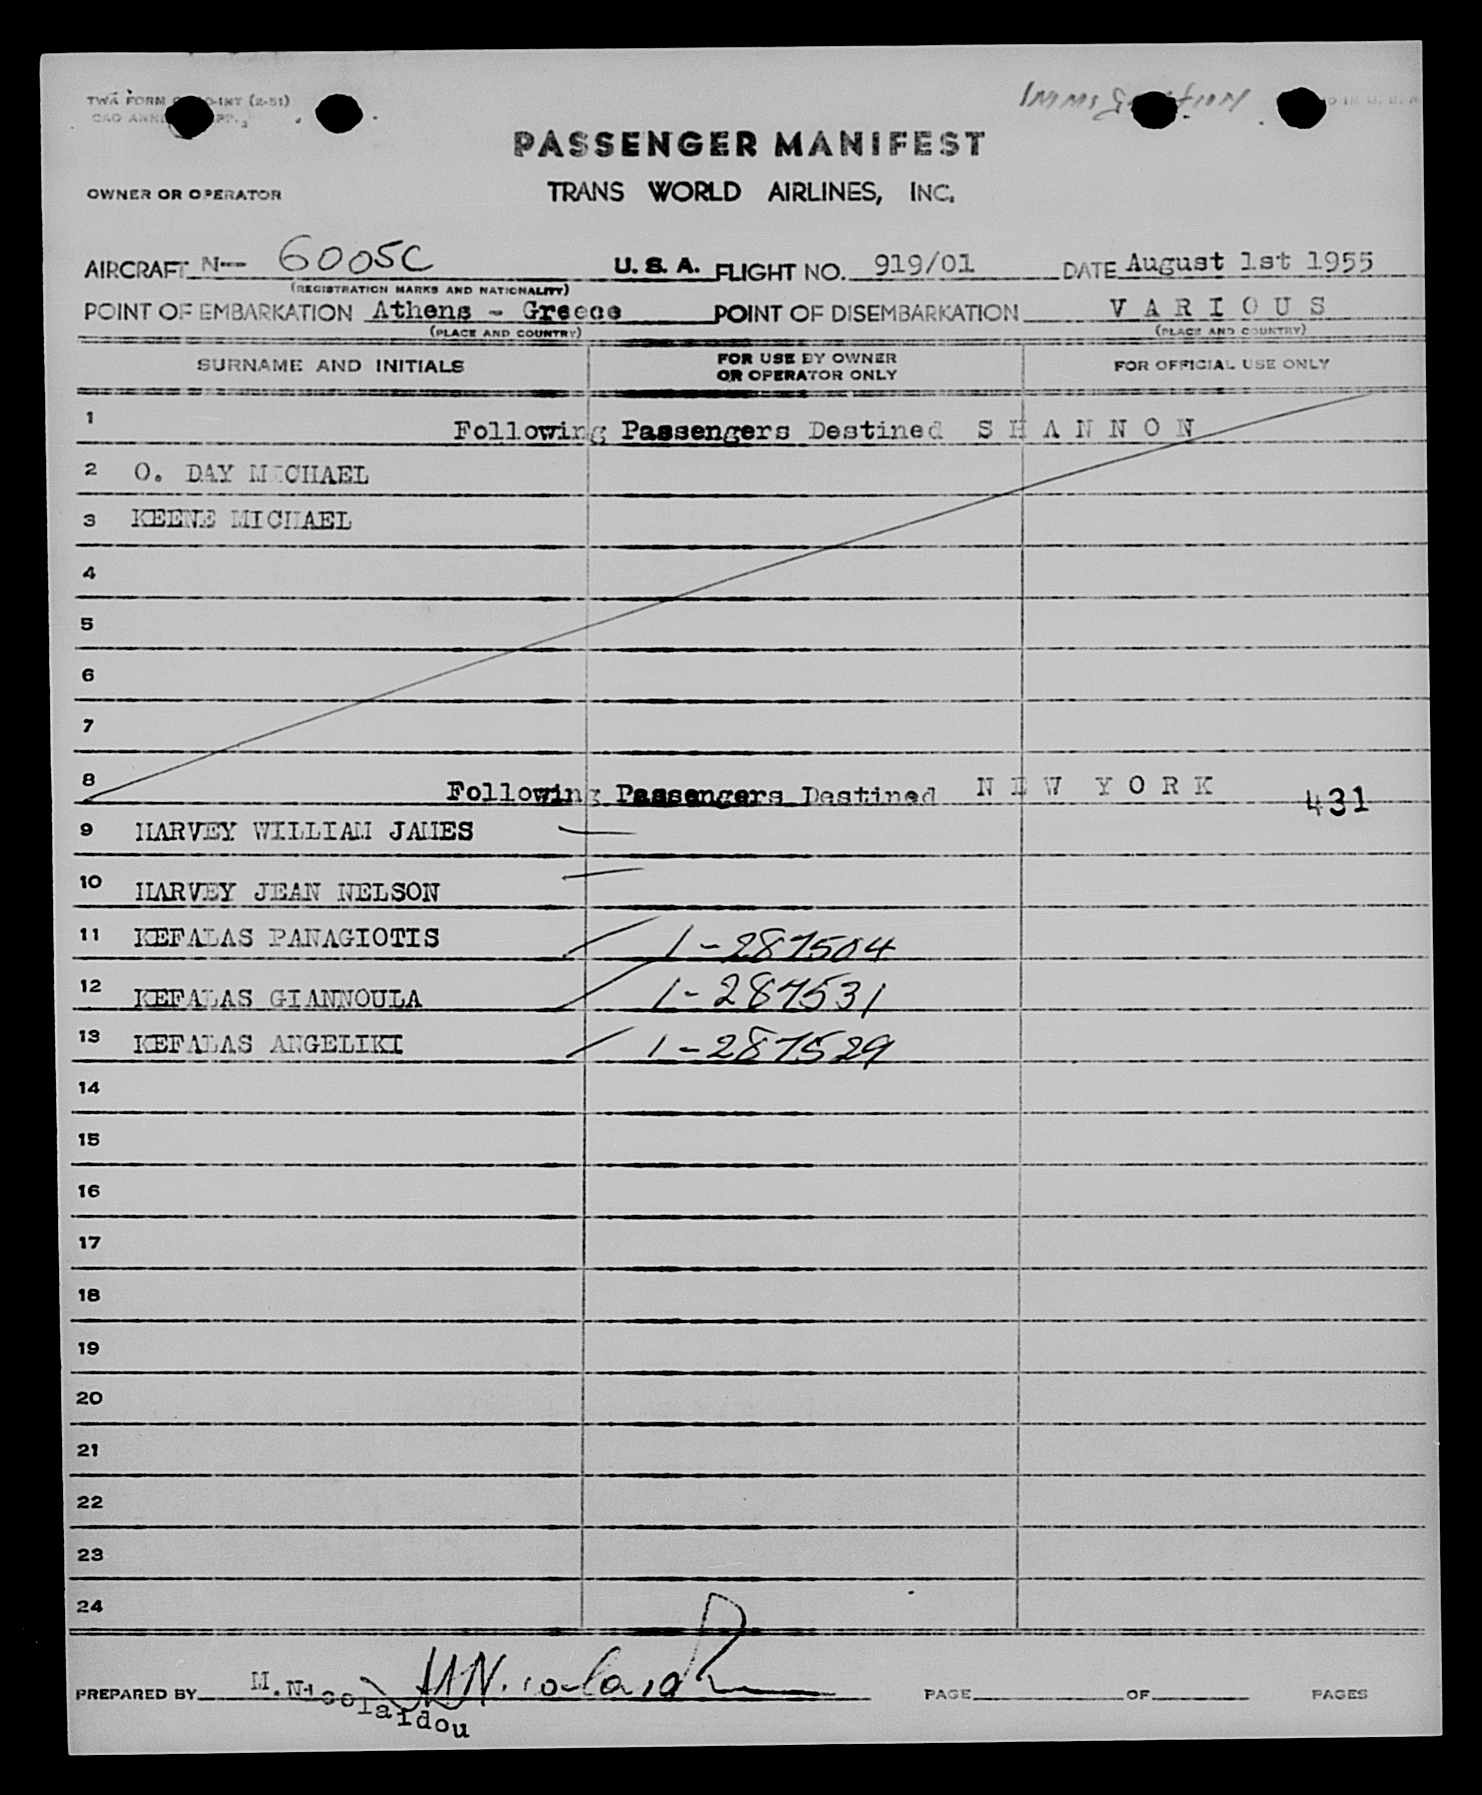 TWA FORM INT (2-51)
Immigration
CAO ANNE
PASSENGER MANIFEST
OWNER OR OPERATOR TRANS WORLD AIRLINES, INC.
AIRCRAFT N-- 6005C U. S. A. FLIGHT NO. 919/01 DATE August 1st 1955
(REGISTRATION MARKS AND NATIONALITY)
POINT OF EMBARKATION Athens - Greece POINT OF DISEMBARKATION V A R I O U S
(PLACE AND COUNTRY) (PLACE AND COUNTRY)
SURNAME AND INITIALS FOR USE BY OWNER OR OPERATOR ONLY FOR OFFICIAL USE ONLY
1 Following Passengers Destined S H A N N O N
2 O. DAY MICHAEL
3 KEENE MICHAEL
4
5
6
7
8 Following Passengers Destined N E W Y O R K 431
9 HARVEY WILLIAM JAMES
10 HARVEY JEAN NELSON
11 KEFALAS PANAGIOTIS 1-287504
12 KEFALAS GIANNOULA 1-287531
13 KEFALAS ANGELIKI 1-287529
14
15
16
17
18
19
20
21
22
23
24
PREPARED BY M. Nicolaidou PAGE OF PAGES